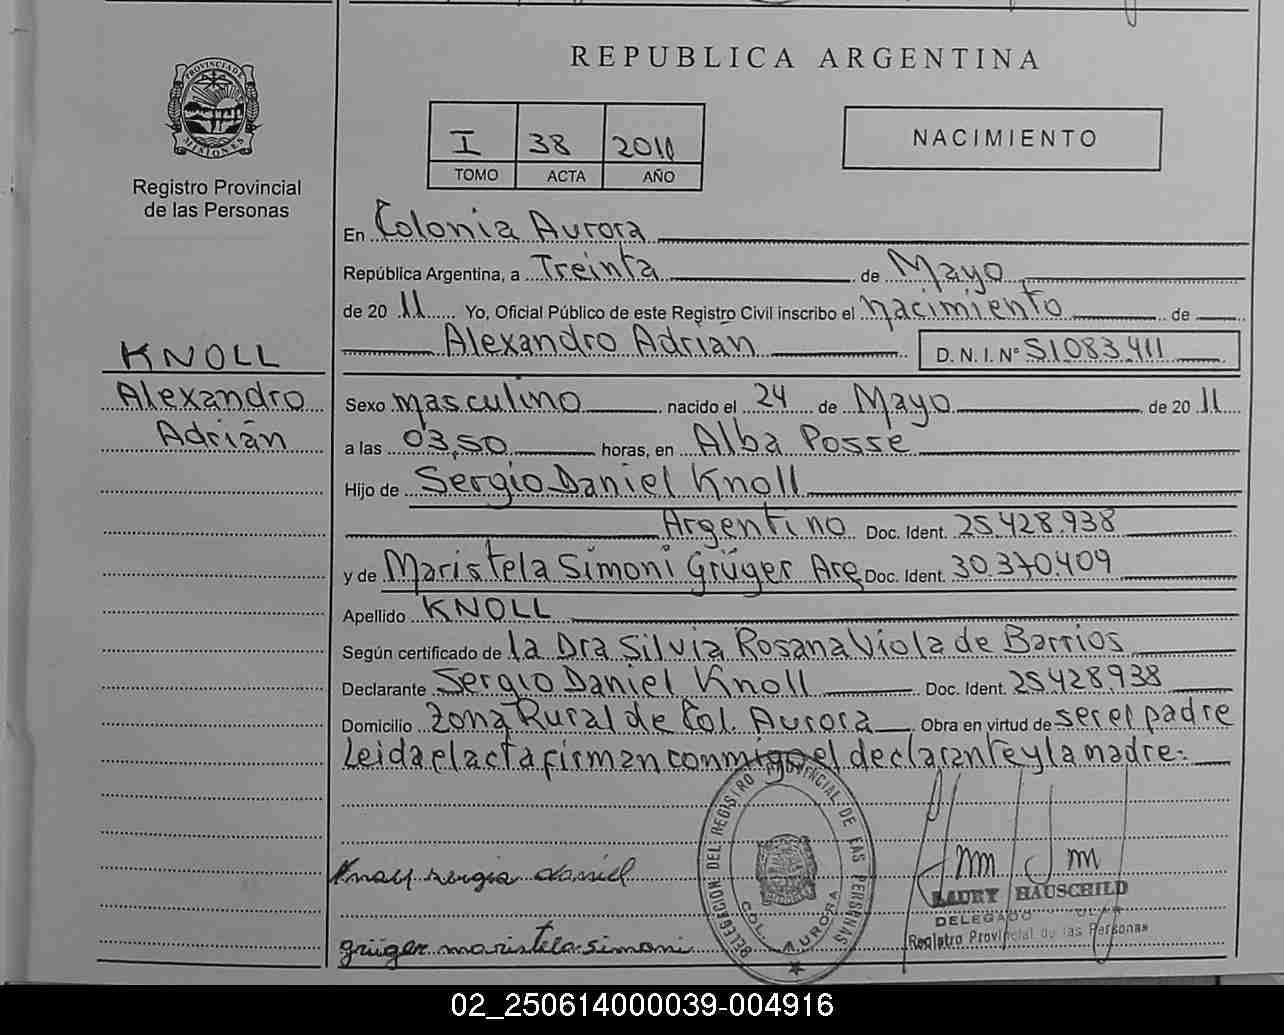 REPUBLICA ARGENTINA
PROVINCIA DE
MISIONES
Registro Provincial
de las Personas
I 38 2011
TOMO ACTA AÑO
NACIMIENTO
En Colonia Aurora
República Argentina, a Treinta de Mayo
de 20 11 Yo, Oficial Público de este Registro Civil inscribo el nacimiento de
Alexandro Adrián D. N. I. Nº 51.083.411
KNOLL
Alexandro
Adrián
Sexo masculino nacido el 24 de Mayo de 20 11
a las 03,50 horas, en Alba Posse
Hijo de Sergio Daniel Knoll
Argentino Doc. Ident. 25.428.938
y de Maristela Simoni Grüger Arg Doc. Ident. 30.370.409
Apellido KNOLL
Según certificado de la Dra Silvia Rosana Viola de Barrios
Declarante Sergio Daniel Knoll Doc. Ident. 25.428.938
Domicilio Zona Rural de Col. Aurora Obra en virtud de ser el padre
Leida el acta firman conmigo el declarante y la madre:
DELEGACION DEL REGISTRO PROVINCIAL DE LAS PERSONAS
COL. AURORA
Knoll sergio daniel
grüger maristela simoni
LAURY HAUSCHILD
DELEGADO
Registro Provincial de las Personas
02_250614000039-004916